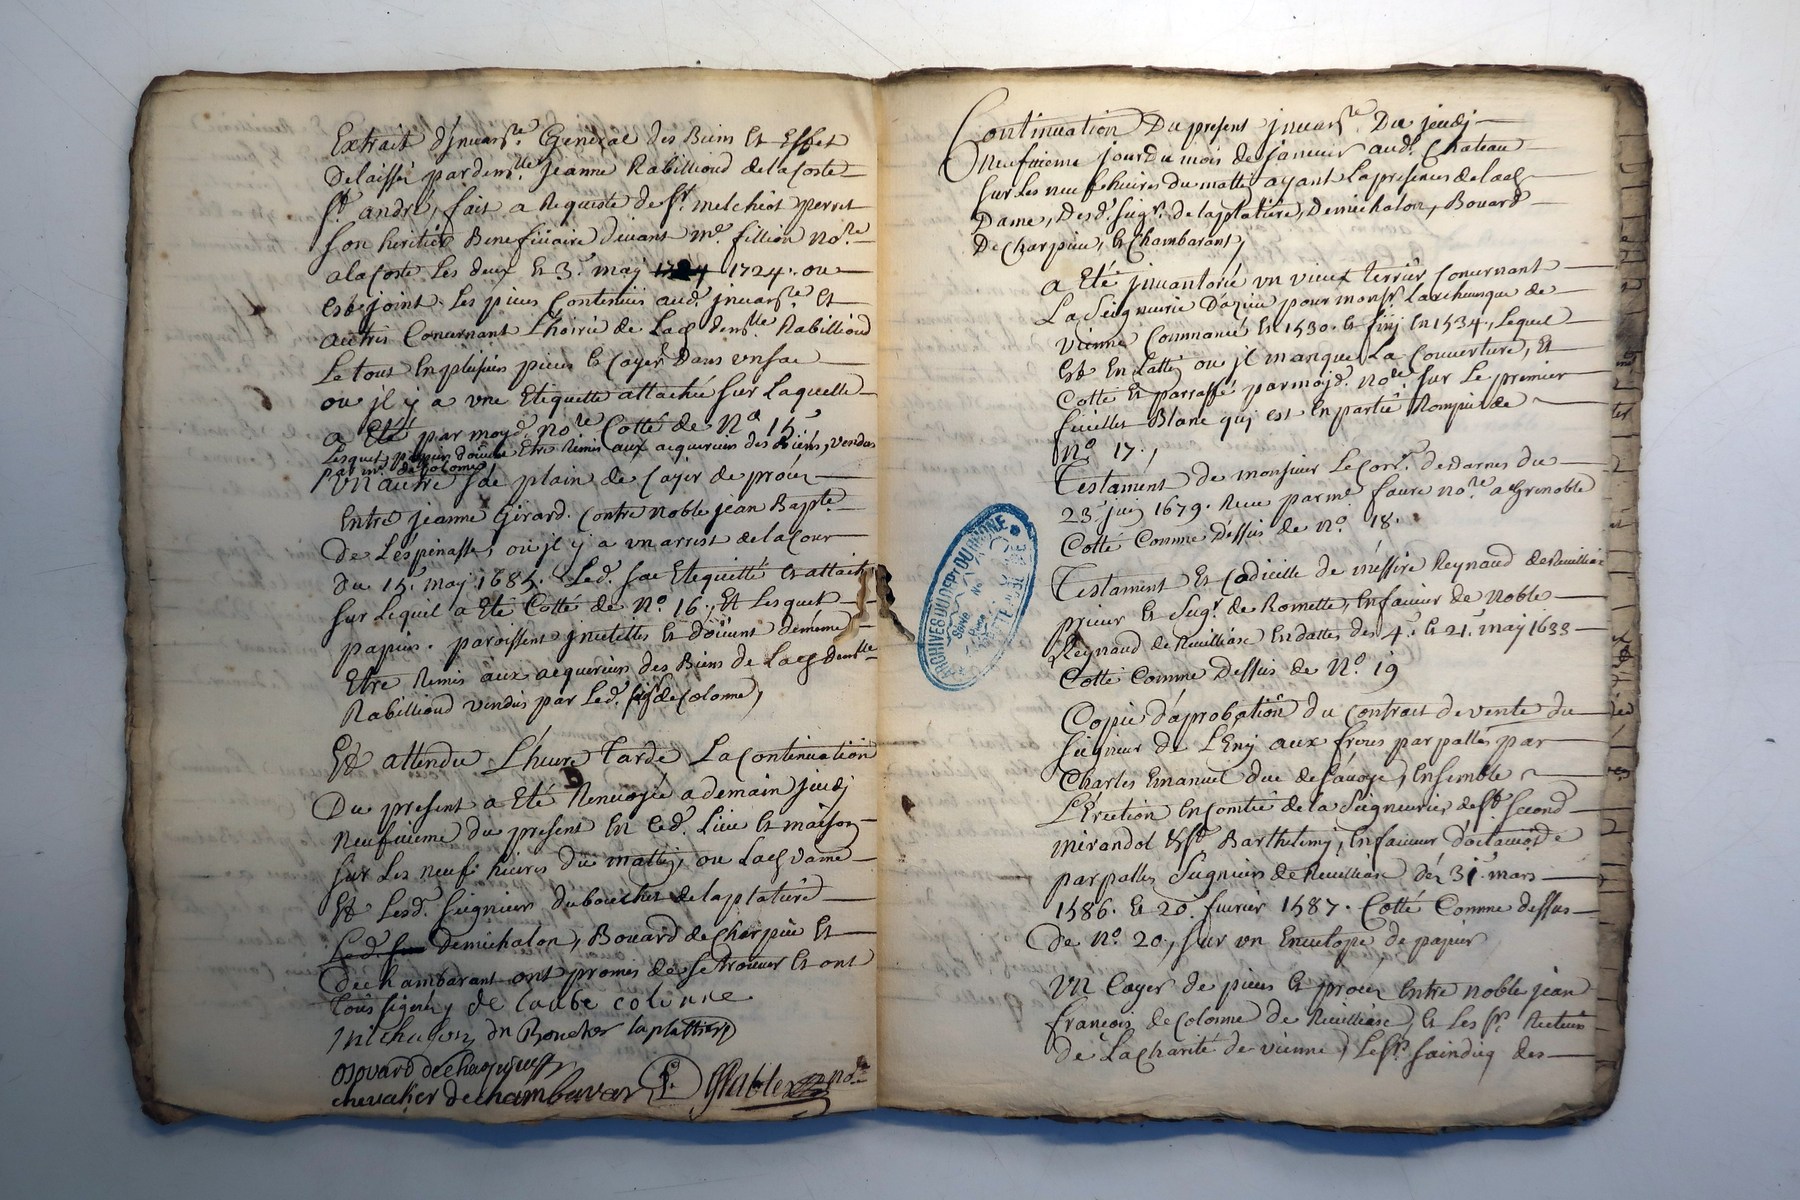 Extrait d'jnuant.re General des Biens Et Effet
Delaissé par dem.lle Jeanne Rabillioud de la Coste
S.t andré, fait a Requiste de S.r melchiot perret
son heritier Beneficiaire devant m.e fillion no.re
a la Coste Les deux Et 3.e maj 1724. ou
Est joint Les pieces Contenues aud. jnuant.re Et
autres Concernant L'hoirie de Lad. dem.lle Rabillioud
Le tout En plusieurs pieces Et Cayer Dans un sac
ou jl y a une Etiquette attachée sur Laquelle
a Eté par moyd. no.re Cotté de N.o 15
Lesquels papiers doivent Etre Remis aux acquereurs des Biens, vendus
par m.r de Colonne,
Un autre sac plain de Cayer de procu
Entre Jeanne Girard. Contre noble jean Bapt.e
De Lespinasse, ou jl y a un arrest de la Cour
du 15.e maj 1685. Led. sac Etiquetté Et attaché
sur Lequel a Eté Cotté de N.o 16., Et Lesquels
papiers. paroissent jnutilles Et doivent demême
Etre Remis aux acquereurs des Biens de Lad. dem.lle
Rabillioud vendus par Led. sg.r de Colonne,
Et attendu L'heure Tarde La Continuation
Du present a Eté Renvoyée a demain jeudj
neufvieme du present En Ced. Lieu Et maison
sur Les neufs heures du mattin, ou Lad. Dame
Et Lesd. seigneurs du bouchet de la platiere
Demichalon, Bouard de Charpieu Et
De chambarant ont promis de se trouver Et ont
Tous signés, de Laube colonne
michalon du Bouchet laplattiere
Bouard de charpieu
chevalier de chambaran
Continuation Du present jnuant.re Du jeudj
Neufvieme jour du mois de januier aud. Chateau
sur Les neuf heures du mattin ayant La presence de lad.
Dame, Desd. seig.rs de la platiere, Demichalon, Bouard
De Charpieu, Et Chambarant,
a Eté jnuantorié un vieux terrier Concernant
La Seigneurie D'azieu pour mons.r Larchevesque de
vienne Commancé En 1530. Et finj En 1534., Lequel
Est En Lattin ou jl manque La Couverture, Et
Cotté Et parraffé par moyd. no.re sur Le premier
feuillet Blanc quj est En partie Rompu de
N.o 17.,
Testament de monsieur Le Con.r dedarnes du
23.e juin 1679. Receu par m.e faure no.re a Grenoble
Cotté Comme Dessus de N.o 18.
Testament Et Codicille de messire Reynaud de Reuilliasc
prieur Et seig.r de Romette, En faueur de noble
Reynaud de Reuilliasc En dattes des 4.e Et 21.e may 1633
Cotté Comme Dessus de N.o 19
Copie d'aprobation du Contrait de vente du
seigneur de L'Enj aux freres parpalles par
Charles Emanuel duc de Sauoye, Ensemble
L'Erection En Comté de la Seigneurie de S.t Second
mirandol Et S.t Barthelemj, En faueur d'octauio de
parpalles Seigneurs de Reuilliasc des 31.e mars
1586. Et 20.e feurier 1587. Cotté Comme dessus
De N.o 20., sur un Enuelope de papier
Un Cayer de pieces Et procu Entre noble jean
françois de Colonne de Reuilliasc, Et Les S.rs Recteurs
de La Charité de vienne, Le S.r saindicq des
ARCHIVES DU DEPT DU RHONE
Série
No
Pièce